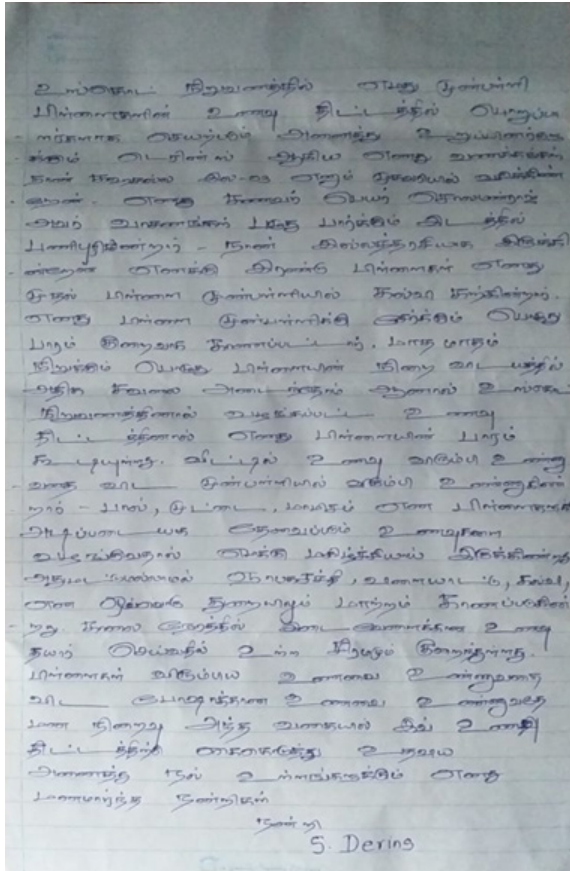 உஸ்கொட் நிறுவனத்தில் எமது முன்பள்ளி
பிள்ளைகளின் உணவு திட்டத்தில் பொறுப்பா
- ளர்களாக செயற்படும் அனைத்து உறுப்பினர்களு
க்கும் டெசிங்ஸ் ஆகிய எனது வணக்கங்கள்
நான் இல-03 எனும் முகவரியில் வசிக்கின்
- றேன். எனது கணவர் பெயர்
அவர் வாகனங்கள் பழுது பார்க்கும் இடத்தில்
பணிபுரிகின்றார் - நான் இல்லத்தரசியாக இருக்கி
- ன்றேன் எனக்கு இரண்டு பிள்ளைகள் எனது
முதல் பிள்ளை முன்பள்ளியில் கல்வி கற்கின்றார்.
எனது பிள்ளை முன்பள்ளிக்கு சேர்க்கும் பொழுது
பாரம் குறைவாக காணப்பட்டார். மாத மாதம்
நிறுக்கும் பொழுது பிள்ளையின் நிறை வட்டத்தில்
அதிக கவலை அடைந்தோம் ஆனால் உஸ்கொட்
நிறுவனத்தினால் வழங்கப்பட்ட உணவு
திட்டத்தினால் எனது பிள்ளையின் பாரம்
கூடியுள்ளது. வீட்டில் உணவு விரும்பி உண்ணு
- வதை விட முன்பள்ளியில் விரும்பி உண்ணுகின்
றார் - பால், முட்டை, மாமிசம் என பிள்ளைகளுக்கு
அடிப்படையாக தேவைப்படும் உணவுகளை
வழங்குவதால் மிக்க மகிழ்ச்சியாய் இருக்கின்றது
அதுமட்டுமல்லாமல் ஞாபகசக்தி, விளையாட்டு, கல்வி,
என ஒவ்வொரு துறையிலும் மாற்றம் காணப்படுகின்
- றது. காலை நேரத்தில் இடைவேளைக்கான உணவு
தயார் செய்வதில் உள்ள சிரமமும் குறைந்துள்ளது.
பிள்ளைகள் விரும்பிய உணவை உண்ணுவதை
விட போஷாக்கான உணவை உண்ணுவதே
மன நிறைவு அந்த வகையில் இவ் உணவு
திட்டத்திற்கு கைகொடுத்து உதவிய
அனைத்து நல் உள்ளங்களுக்கும் எனது
மனமார்ந்த நன்றிகள்
நன்றி
S. Dering